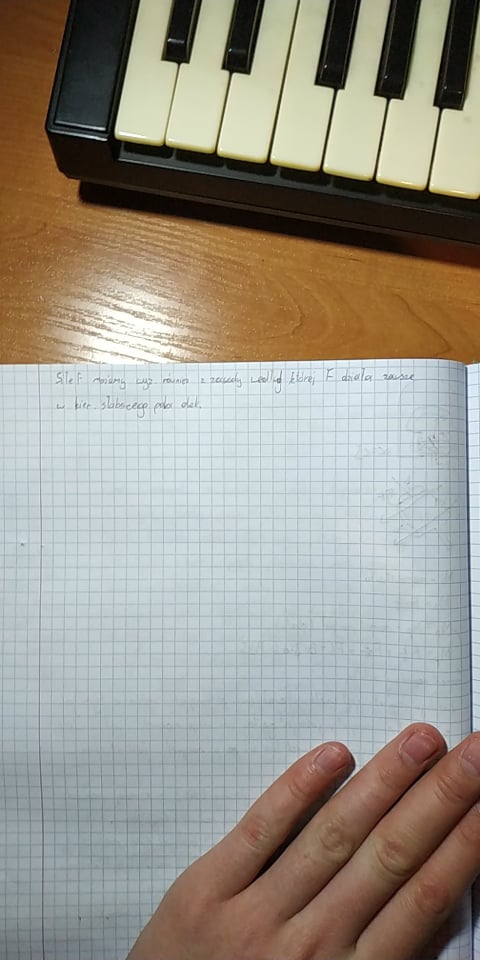 Siłę F możemy wyz. również z zasady według której F działa zawsze
w kier. słabnącego pola elek.